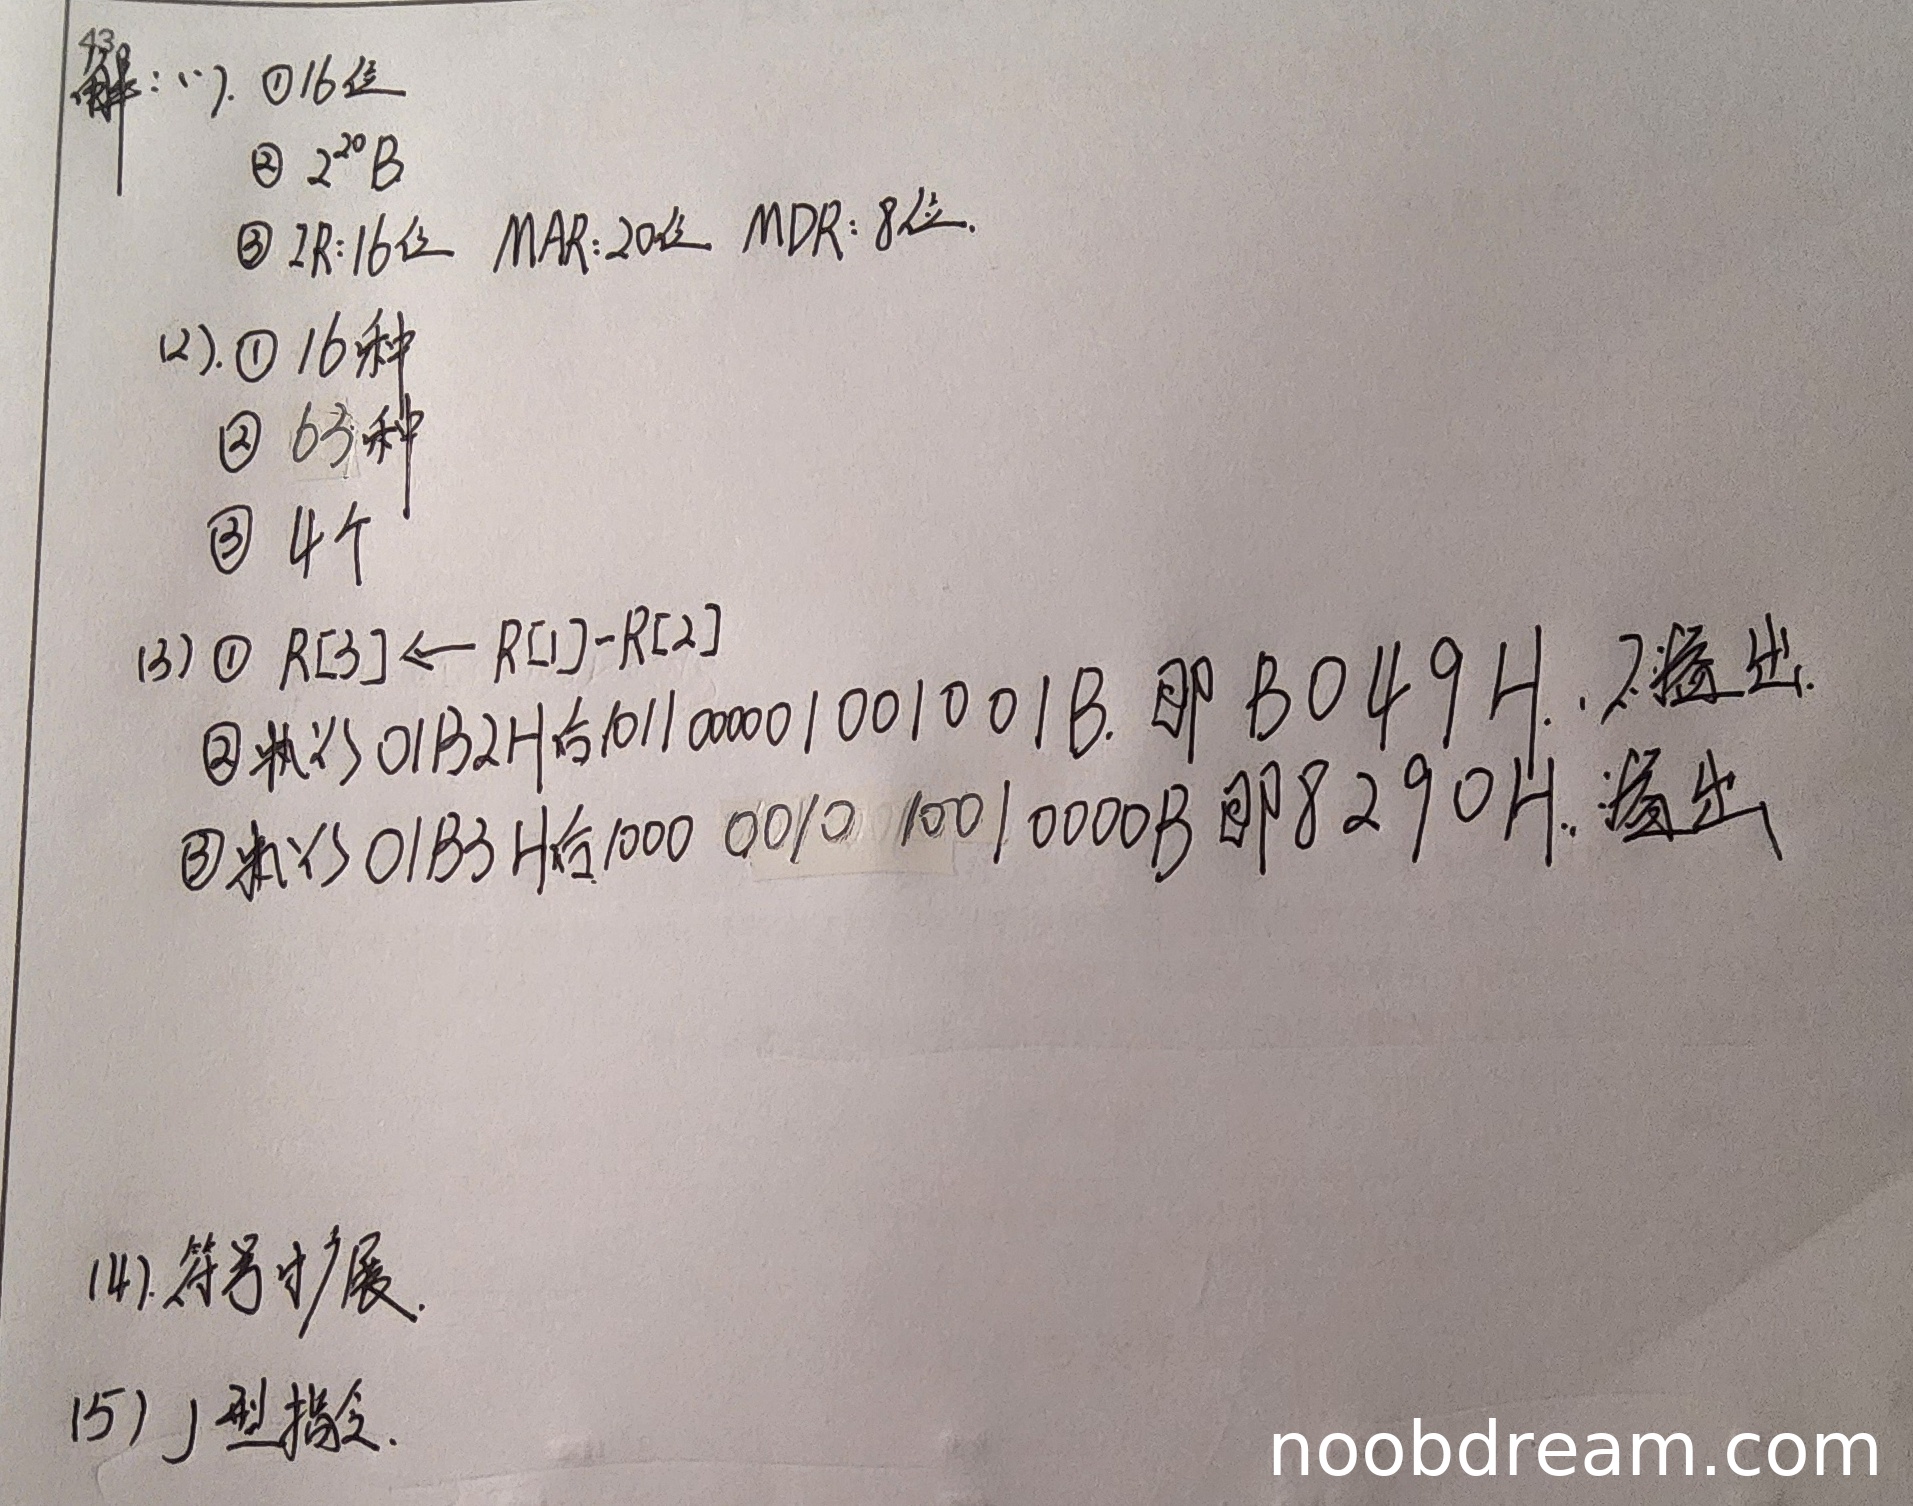 43
解:(1). ①16位
② 2²⁰B
③ IR:16位 MAR:20位 MDR:8位.
(2). ① 16种
② 63种
③ 4个
(3) ① R[3]←R[1]-R[2]
②执行01B2H后1011000001001001B. 即B049H. 不溢出.
③执行01B3H后1000 0010 1001 0000B 即8290H. 溢出
(4). 符号扩展.
(5) J型指令.
noobdream.com